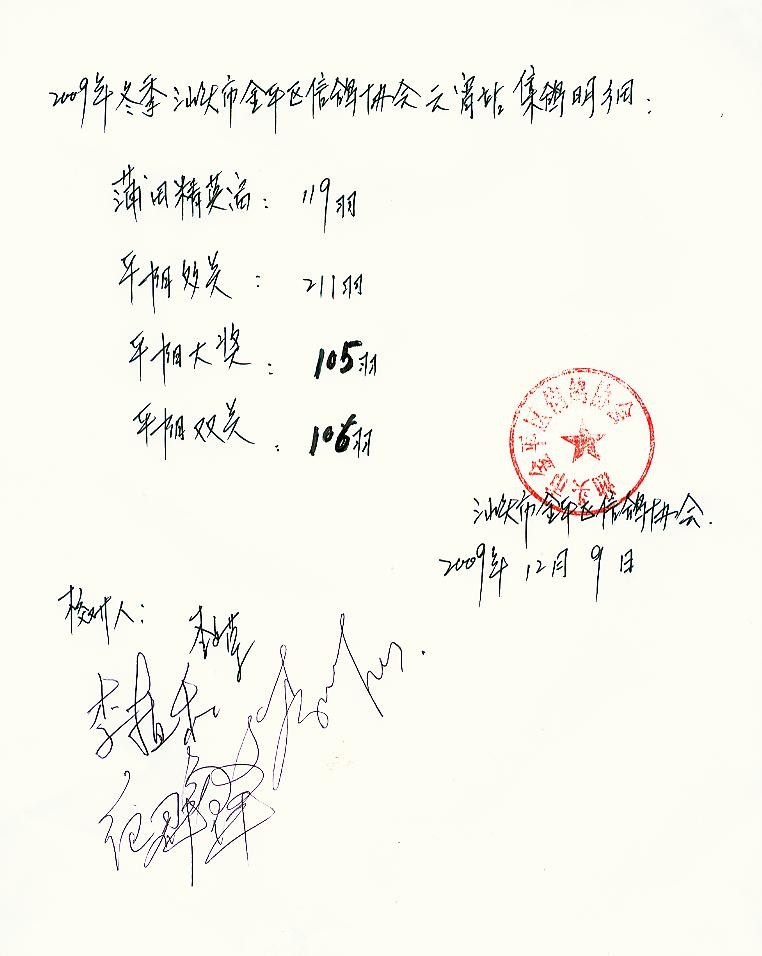 2009年冬季汕头市金平区信鸽协会云霄站集鸽明细：
莆田精英：119羽
平阳关：211羽
平阳大奖：105羽
平阳双关：106羽
汕头市金平区信鸽协会
汕头市金平区信鸽协会.
2009年12月9日
校对人：